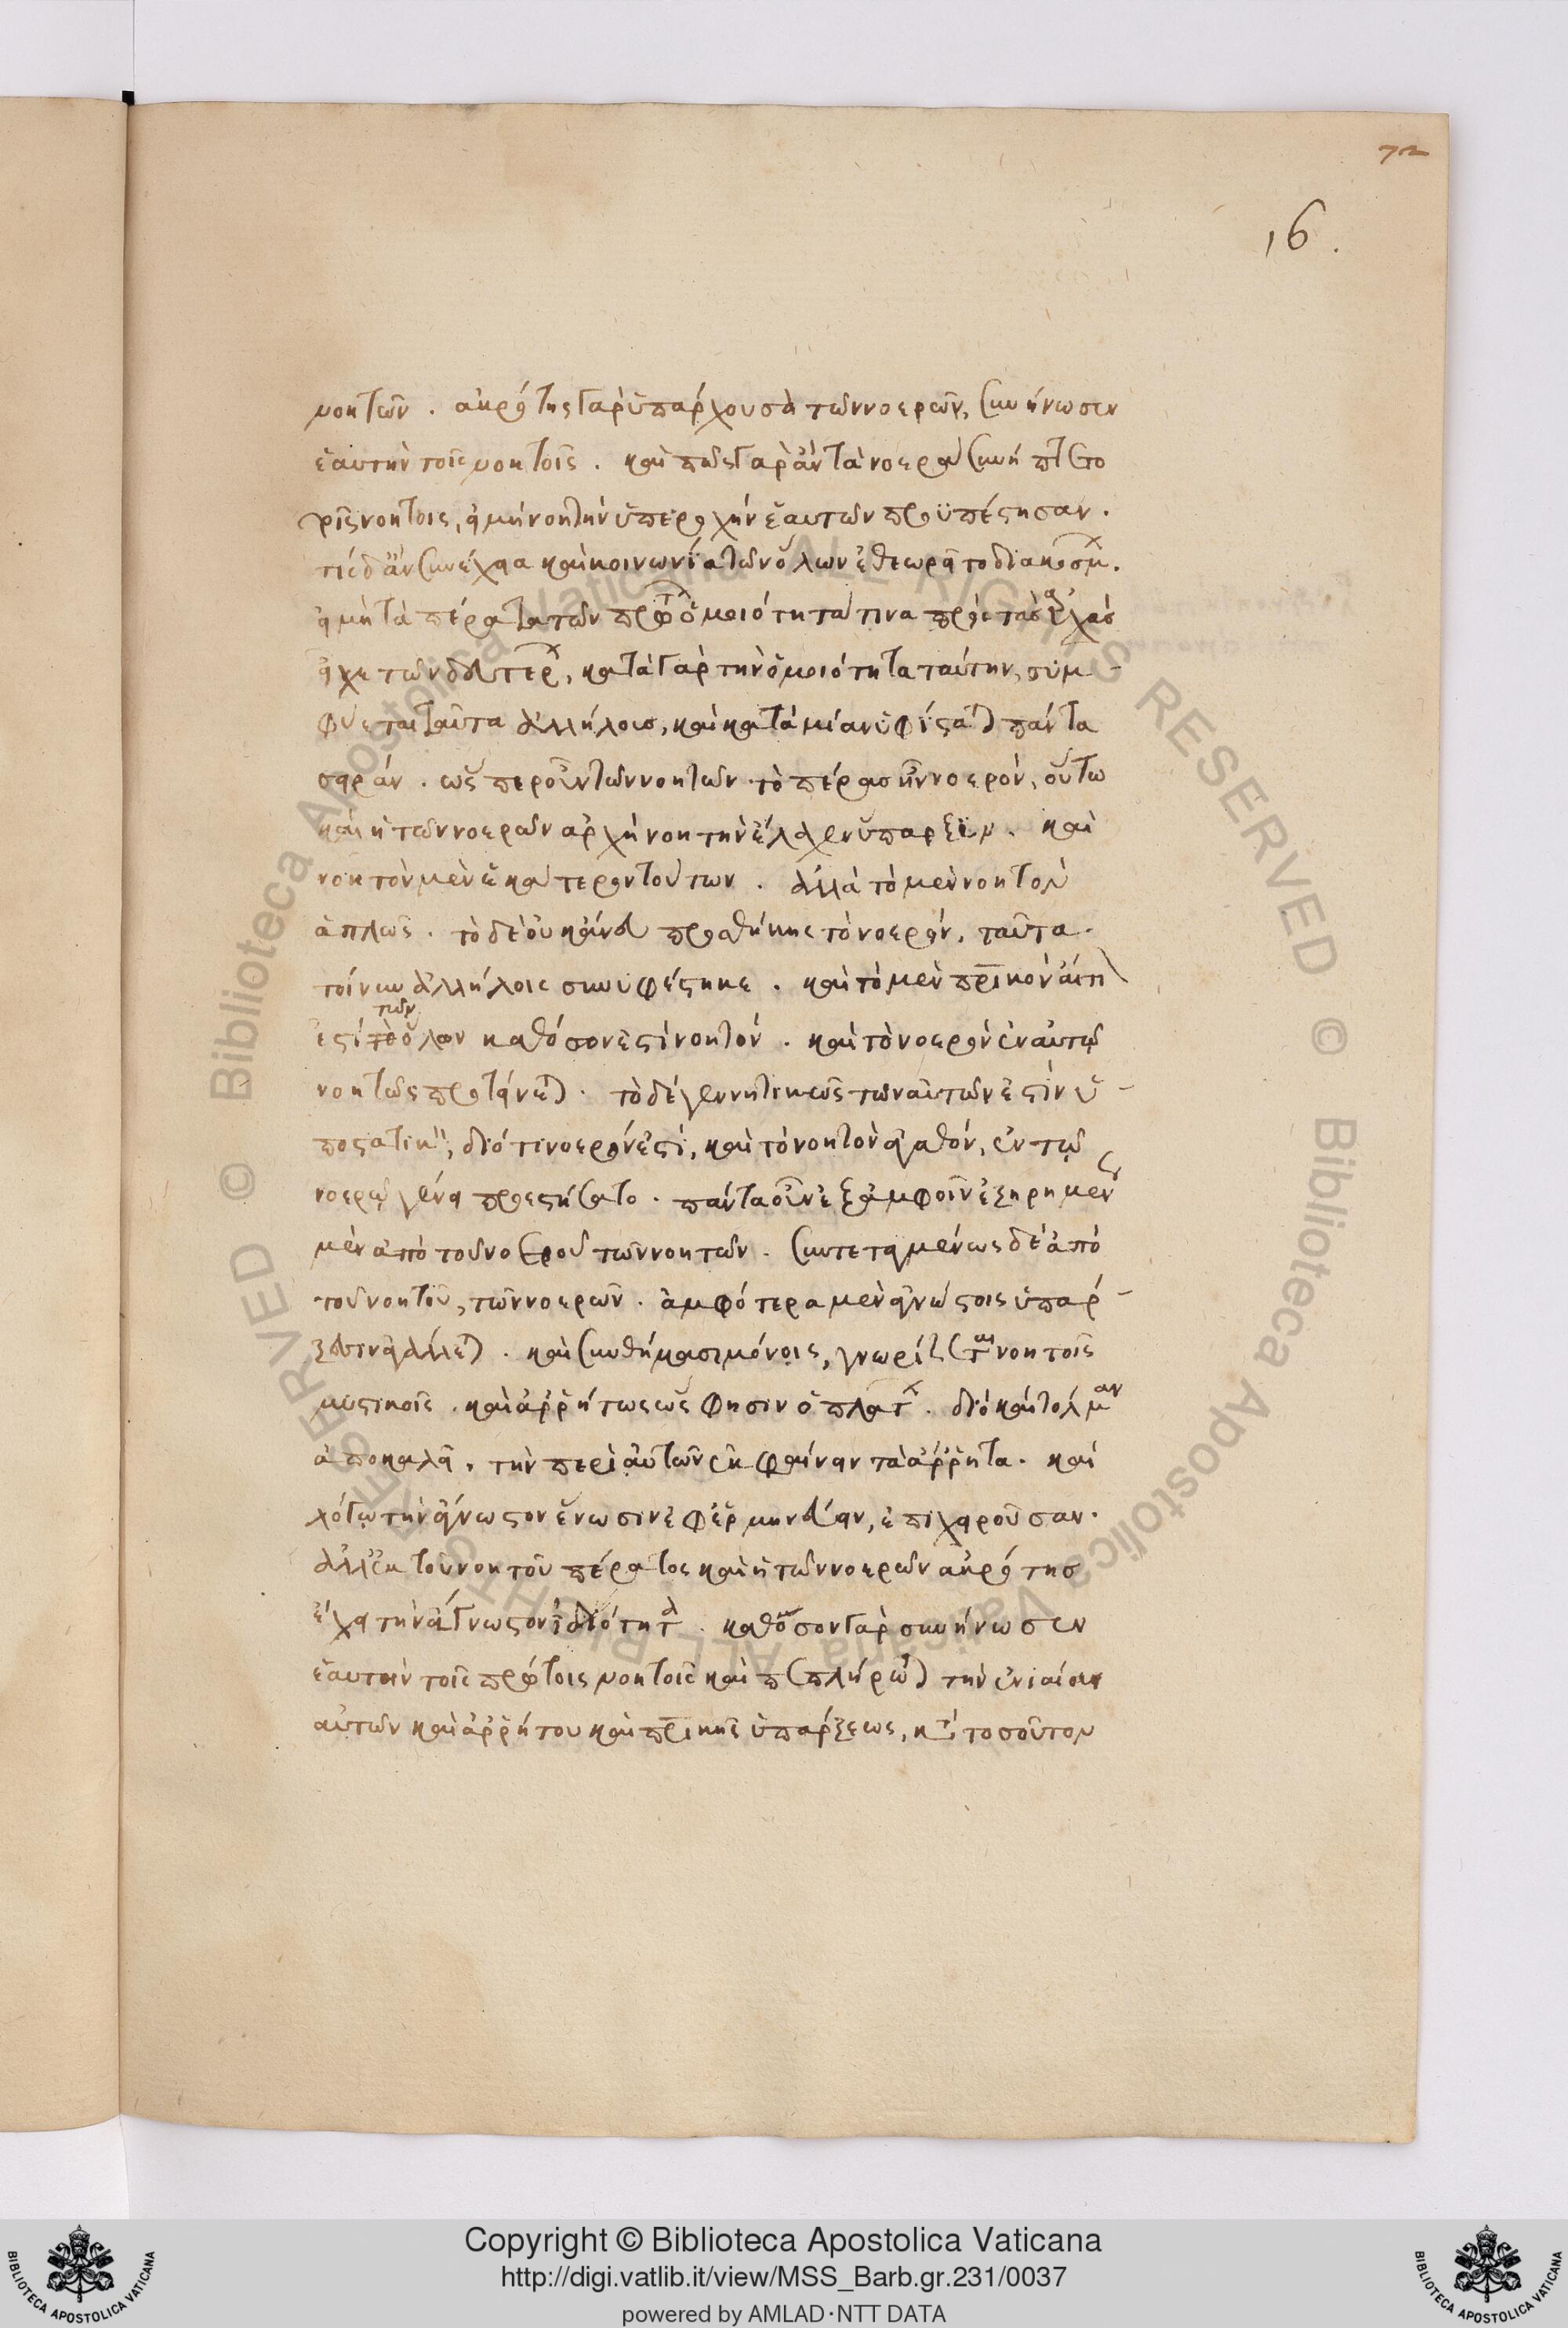 72
16.
νοητῶν . ἀκρότης γὰρ ὑπάρχουσα τῶν νοερῶν, συνήνωσεν
ἑαυτὴν τοῖς νοητοῖς . καὶ πῶς γὰρ ἂν τὰ νοερὰ συνήπτετο
τοῖς νοητοῖς, εἰ μὴ νοητὴν ὑπεροχὴν ἑαυτῶν προϋπέστησαν .
τίς δ' ἂν συνέχεια καὶ κοινωνία τῶν ὅλων ἐθεωρεῖτο διακόσμ .
εἰ μὴ τὰ πέρατα τῶν πρώτ ὁμοιότητά τινα πρὸς τὰς ἀρχὰς
εἶχε τῶν δευτέρ , κατὰ γὰρ τὴν ὁμοιότητα ταύτην, συμ-
φύεται ταῦτα ἀλλήλοις, καὶ κατὰ μίαν ὑφίσταται πάντα
σειράν . ὥσπερ οὖν τῶν νοητῶν τὸ πέρας ἦν νοερόν, οὕτω
καὶ ἡ τῶν νοερῶν ἀρχὴ νοητὴν ἔλαχεν ὕπαρξιν . καὶ
νοητὸν μὲν ἑκάτερον τούτων . ἀλλὰ τὸ μὲν νοητὸν
ἁπλῶς . τὸ δὲ οὐκ ἄνευ προσθήκης τὸ νοερόν, ταῦτα
τοίνυν ἀλλήλοις συνυφέστηκε . καὶ τὸ μὲν πρικὸν αἴτι
ἐστὶ τῶν ὅλων καθόσον ἐστὶ νοητόν . καὶ τὸ νοερὸν ἐν αὐτῷ
νοητῶς προτείνεται . τὸ δὲ γεννητικῶς τῶν αὐτῶν ἐστὶν ὑ-
ποστατικ , διότι νοερόν ἐστι, καὶ τὸ νοητὸν ἀγαθόν, ἐν τῷ
νοερῷ γένει προεστήσατο . πάντα οὖν ἐξ ἀμφοῖν ἐξῃρημέν
μὲν ἀπὸ τοῦ νοεροῦ τῶν νοητῶν . συντεταγμένως δὲ ἀπὸ
τοῦ νοητοῦ, τῶν νοερῶν . ἀμφότερα μὲν ἀγνώστοις ὑπάρ-
ξεσιν ἀγάλλεται . καὶ συνθήμασι μόνοις, γνωρίζεται νοητοῖς
μυστικοῖς . καὶ ἀρρήτως ὥς φησιν ὁ πλατ . διὸ καὶ τόλμαν
ἀποκαλεῖ . τὴν περὶ αὐτῶν ἐκφαίνειν τὰ ἄρρητα . καὶ
λόγῳ τὴν ἄγνωστον ἕνωσιν ἐφερμηνεύειν, ἐπιχειροῦσαν .
ἀλλ' ἐκ τοῦ νοητοῦ πέρατος καὶ ἡ τῶν νοερῶν ἀκρότης
ἔχει τὴν ἄγνωστον ἰδιότητα . καθόσον γὰρ συνήνωσεν
ἑαυτὴν τοῖς πρώτοις νοητοῖς καὶ πεπλήρωται τὴν ἑνιαίαν
αὐτῶν καὶ ἀρρήτου καὶ πρικῆς ὑπάρξεως, κατὰ τοσοῦτον
Copyright © Biblioteca Apostolica Vaticana
http://digi.vatlib.it/view/MSS_Barb.gr.231/0037
powered by AMLAD·NTT DATA